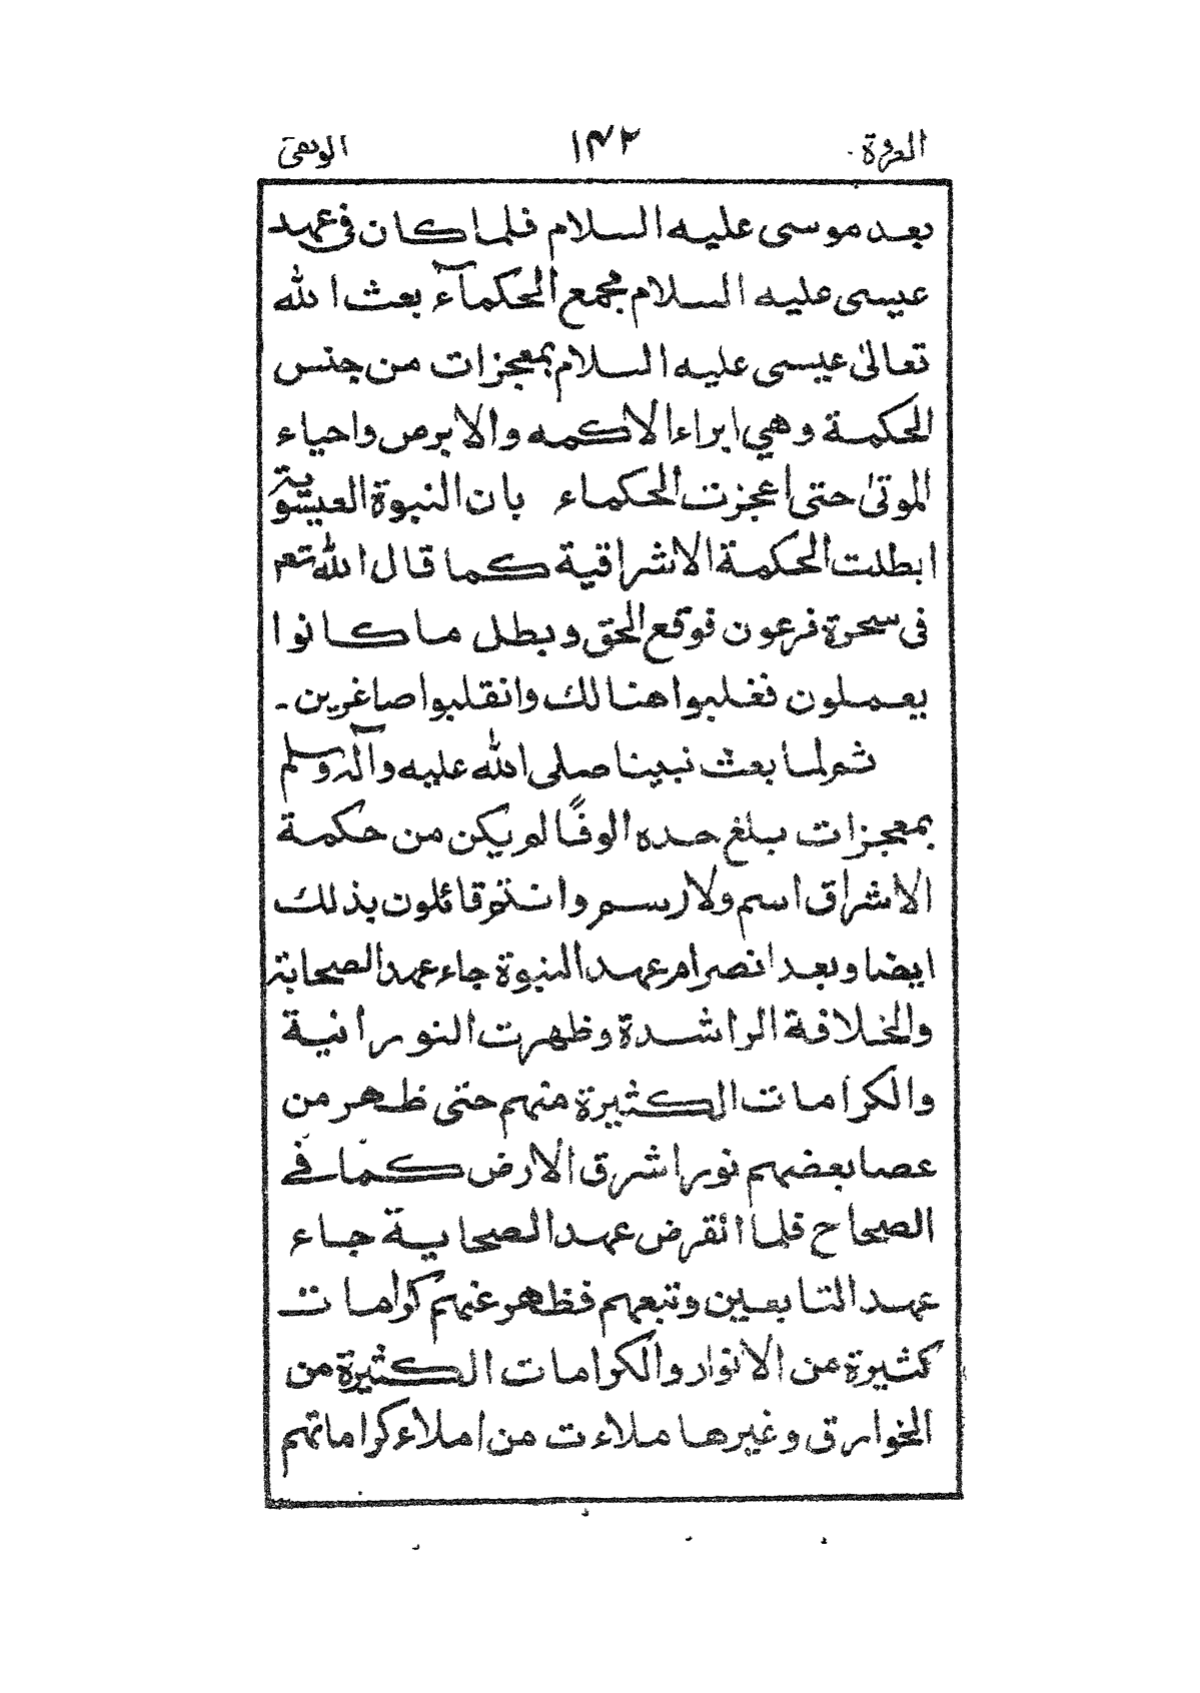 العروة ١٤٢ الوثقى
بعد موسى عليه السلام فلما كان فى عهد
عيسى عليه السلام مجمع الحكمآء بعث الله
تعالىٰ عيسى عليه السلام بمعجزات من جنس
الحكمة وهي ابراء الاكمه والابرص واحياء
الموتىٰ حتى اعجزت الحكماء بان النبوة العيسوية
ابطلت الحكمة الاشراقية كما قال الله تعم
فى سحرة فرعون فوقع الحق وبطل ما كانوا
يعملون فغلبوا هنالك وانقلبوا صاغرين ۔
ثم لما بعث نبينا صلى الله عليه وآله وسلم
بمعجزات بلغ حده الوفًا لم يكن من حكمة
الاشراق اسم ولا رسم وانتم قائلون بذلك
ايضا وبعد انصرام عهد النبوة جاء عهد الصحابة
والخلافة الراشدة وظهرت النورانية
والكرامات الكثيرة منهم حتى ظهر من
عصا بعضهم نور اشرق الارض كما فے
الصحاح فلما انقرض عهد الصحابية جاء
عهد التابعين وتبعهم فظهر عنهم كرامات
كثيرة من الانوار والكرامات الكثيرة من
الخوارق وغيرها ملاءت من املاء كراماتهم